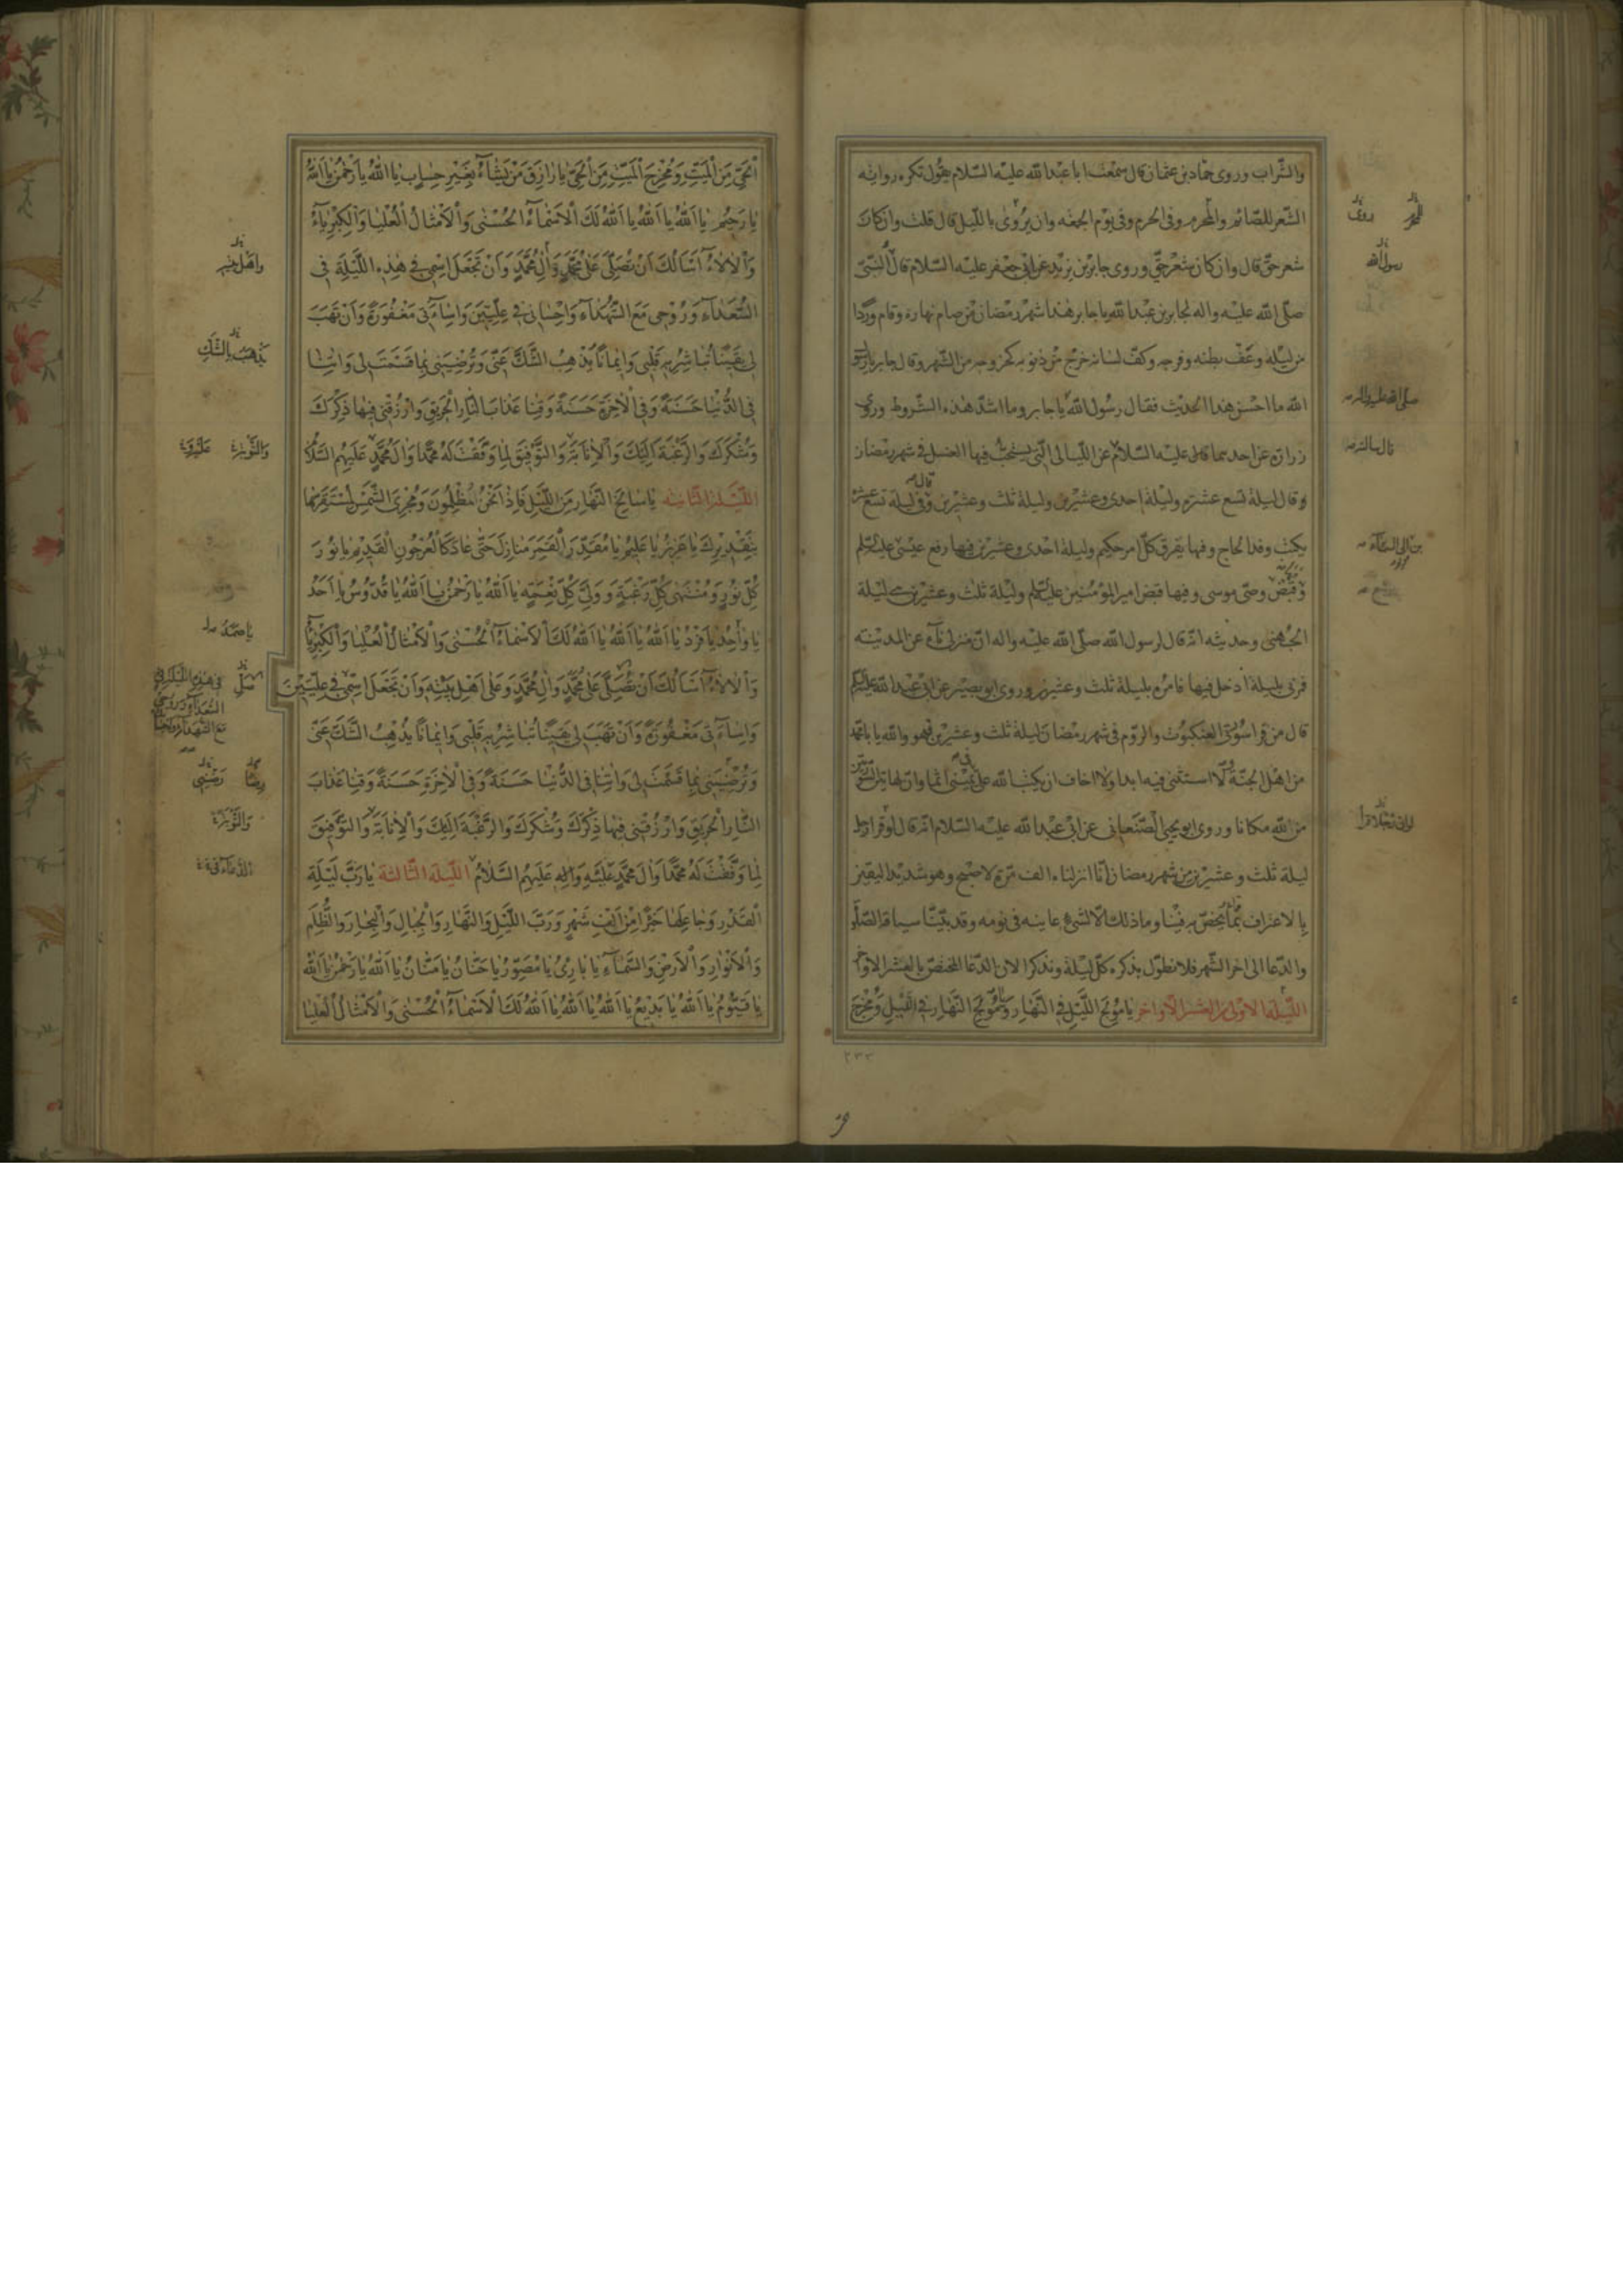 والشّراب وروى حمّاد بن عثمان قال سمعت ابا عبد الله عليه السّلام يقول تكره رواية
الشّعر للصّائم والمحرم وفى الحرم وفى يوم الجمعه وان يروى باللّيل قال قلت وان كان
شعر حقّ قال وان كان شعر حقّ وروى جابر بن يزيد عن ابى جعفر عليه السّلام قال قال النبىّ
صلّى الله عليه واله لجابر بن عبد الله يا جابر هذا شهر رمضان من صام نهاره وقام وردًا
من ليله وعفّ بطنه وفرجه وكفّ لسانه خرج من ذنوبه كخروجه من الشّهر وقال جابر يا رسول
الله ما احسن هذا الحديث فقال رسول الله يا جابر وما اشدّ هذه الشّروط وروى
زرارة عن احدهما عليه السّلام عن اللّيالى الّتى يستحبّ فيها الغسل فى شهر رمضان
وقال ليلة تسع عشرة وليلة احدى وعشرين وليلة ثلث وعشرين وقال فى ليلة تسع عشرة
يكتب وفد الحاج وفيها يفرق كلّ امر حكيم وليلة احدى وعشرين فيها رفع عيسى عليه السّلم
وقبض وصىّ موسى وفيها قبض امير المؤمنين عليه السّلم وليلة ثلث وعشرين ليلة
الجهنى وحديثه انّه قال لرسول الله صلّى الله عليه واله انّ منزلى ناء عن المدينة
فمرنى بليلة ادخل فيها فامره بليلة ثلث وعشرين وروى ابو بصير عن ابى عبد الله عليه السّلم
قال من قرا سورتى العنكبوت والرّوم فى شهر رمضان ليلة ثلث وعشرين فهو والله يا با محمّد
من اهل الجنّة لا استثنى فيه ابدا ولا اخاف ان يكتب الله على فى يمينى اثما وانّ لهاتين السّورتين
من الله مكانا وروى ابو يحيى الصّنعانى عن ابى عبد الله عليه السّلام انّه قال لو قرا رجل
ليلة ثلث وعشرين من شهر رمضان انّا انزلناه الف مرّة لاصبح وهو شديد اليقين
بالاعتراف بما يخصّ به فينا وما ذلك الّا لشىء عاينه فى نومه وقد بيّنّا سياقة الصّلو
والدّعا الى اخر الشّهر فلا نطوّل بذكره كلّ ليلة ونذكر الان الدّعا المختصّ بالعشر الاواخر
اللّيلة الاولى من العشر الاواخر يا مولج اللّيل فى النّهار ومولج النّهار فى اللّيل ومخرج
رسول الله
صلى الله عليه واله
٢٣٣
الْحَىِّ مِنَ الْمَيِّتِ وَمُخْرِجَ الْمَيِّتِ مِنَ الْحَىِّ يا رازِقَ مَنْ يَشاءُ بِغَيْرِ حِسابٍ يا اَللهُ يا رَحْمنُ يا اَللهُ
يا رَحيمُ يا اَللهُ يا اَللهُ يا اَللهُ لَكَ الْاَسْماءُ الْحُسْنى وَالْاَمْثالُ الْعُلْيا وَالْكِبْرِياءُ
وَالْالاءُ اَسْاَلُكَ اَنْ تُصَلِّىَ عَلى مُحَمَّدٍ وَالِ مُحَمَّدٍ وَاَنْ تَجْعَلَ اسْمى فى هذِهِ اللَّيْلَةِ فى
السُّعَداءِ وَرُوْحى مَعَ الشُّهَداءِ وَاِحْسانى فى عِلِّيّينَ وَاِساءَتى مَغْفُورَةً وَاَنْ تَهَبَ
لى يَقيناً تُباشِرُ بِهِ قَلْبى وَايماناً يُذْهِبُ الشَّكَّ عَنّى وَتُرْضِيَنى بِما قَسَمْتَ لى وَاتِنا
فِى الدُّنْيا حَسَنَةً وَفِى الْاخِرَةِ حَسَنَةً وَقِنا عَذابَ النّارِ الْحَريقِ وَارْزُقْنى فيها ذِكْرَكَ
وَشُكْرَكَ وَالرَّغْبَةَ اِلَيْكَ وَالْاِنابَةَ وَالتَّوْفيقَ لِما وَفَّقْتَ لَهُ مُحَمَّداً وَالَ مُحَمَّدٍ عَلَيْهِمُ السَّلامُ
اللَّيْلة الثّانية يا سالِخَ النَّهارِ مِنَ اللَّيْلِ فَاِذا نَحْنُ مُظْلِمُونَ وَمُجْرِىَ الشَّمْسِ لِمُسْتَقَرِّها
بِتَقْديرِكَ يا عَزيزُ يا عَليمُ يا مُقَدِّرَ الْقَمَرِ مَنازِلَ حَتّى عادَ كَالْعُرْجُونِ الْقَديمِ يا نُورَ
كُلِّ نُورٍ وَمُنْتَهى كُلِّ رَغْبَةٍ وَوَلِىَّ كُلِّ نِعْمَةٍ يا اَللهُ يا رَحْمنُ يا اَللهُ يا قُدُّوسُ يا اَحَدُ
يا واحِدُ يا فَرْدُ يا اَللهُ يا اَللهُ يا اَللهُ لَكَ الْاَسْماءُ الْحُسْنى وَالْاَمْثالُ الْعُلْيا وَالْكِبْرِياءُ
وَالْالاءُ اَسْاَلُكَ اَنْ تُصَلِّىَ عَلى مُحَمَّدٍ وَالِ مُحَمَّدٍ وَعَلى اَهْلِ بَيْتِهِ وَاَنْ تَجْعَلَ اسْمى فى عِلِّيّينَ
وَاِساءَتى مَغْفُورَةً وَاَنْ تَهَبَ لى يَقيناً تُباشِرُ بِهِ قَلْبى وَايماناً يُذْهِبُ الشَّكَّ عَنّى
وَتُرْضِيَنى بِما قَسَمْتَ لى وَاتِنا فِى الدُّنْيا حَسَنَةً وَفِى الْاخِرَةِ حَسَنَةً وَقِنا عَذابَ
النّارِ الْحَريقِ وَارْزُقْنى فيها ذِكْرَكَ وَشُكْرَكَ وَالرَّغْبَةَ اِلَيْكَ وَالْاِنابَةَ وَالتَّوْفيقَ
لِما وَفَّقْتَ لَهُ مُحَمَّداً وَالَ مُحَمَّدٍ عَلَيْهِ وَالِهِ عَلَيْهِمُ السَّلامُ اللّيلة الثّالثة يا رَبَّ لَيْلَةِ
الْقَدْرِ وَجاعِلَها خَيْراً مِنْ اَلْفِ شَهْرٍ وَرَبَّ اللَّيْلِ وَالنَّهارِ وَالْجِبالِ وَالْبِحارِ وَالظُّلَمِ
وَالْاَنْوارِ وَالْاَرْضِ وَالسَّماءِ يا بارِئُ يا مُصَوِّرُ يا حَنّانُ يا مَنّانُ يا اَللهُ يا رَحْمنُ يا اَللهُ
يا قَيُّومُ يا اَللهُ يا بَديعُ يا اَللهُ يا اَللهُ يا اَللهُ لَكَ الْاَسْماءُ الْحُسْنى وَالْاَمْثالُ الْعُلْيا
يا صَمَدُ